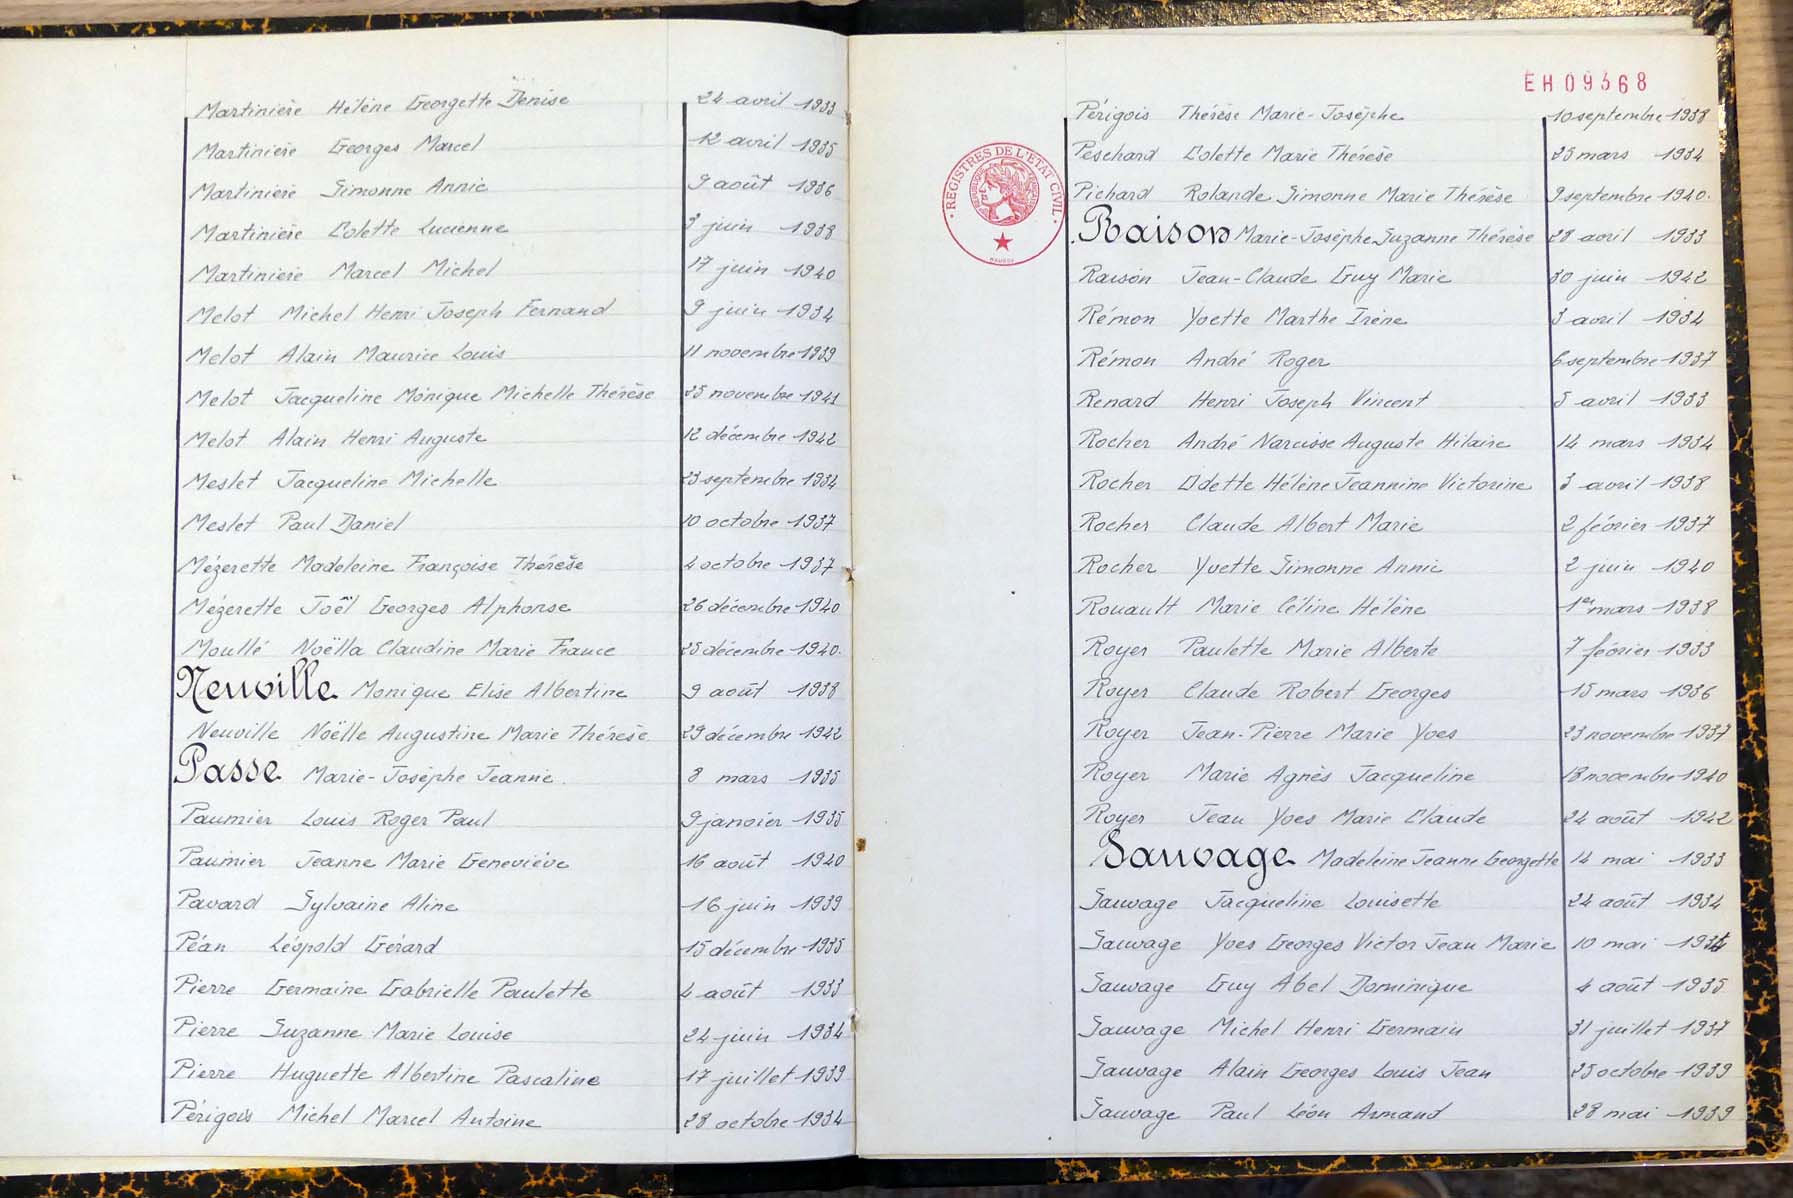 Martinière Hélène Georgette Denise 24 avril 1933
Martinière Georges Marcel 12 avril 1935
Martinière Simonne Annie 9 août 1936
Martinière Colette Lucienne 3 juin 1938
Martinière Marcel Michel 17 juin 1940
Melot Michel Henri Joseph Fernand 9 juin 1934
Melot Alain Maurice Louis 11 novembre 1939
Melot Jacqueline Monique Michelle Thérèse 25 novembre 1941
Melot Alain Henri Auguste 12 décembre 1942
Meslet Jacqueline Michelle 23 septembre 1934
Meslet Paul Daniel 10 octobre 1937
Mézerette Madeleine Françoise Thérèse 4 octobre 1937
Mézerette Joël Georges Alphonse 26 décembre 1940
Moullé Noëlla Claudine Marie France 25 décembre 1940.
Neuville Monique Elise Albertine 9 août 1938
Neuville Noëlle Augustine Marie Thérèse 29 décembre 1942
Passe Marie-Josèphe Jeanne. 8 mars 1935
Paumier Louis Roger Paul 9 janvier 1935
Paumier Jeanne Marie Geneviève 16 août 1940
Pavard Sylvaine Aline 16 juin 1939
Péan Léopold Gérard 15 décembre 1935
Pierre Germaine Gabrielle Paulette 4 août 1933
Pierre Suzanne Marie Louise 24 juin 1934
Pierre Huguette Albertine Pascaline 17 juillet 1939
Périgois Michel Marcel Antoine 28 octobre 1934
EH09368
REGISTRES DE L'ETAT CIVIL
Périgois Thérèse Marie-Josèphe 10 septembre 1938
Peschard Colette Marie Thérèse 25 mars 1934
Pichard Rolande Simonne Marie Thérèse 9 septembre 1940.
Raison Marie-Josèphe Suzanne Thérèse 28 avril 1933
Raison Jean-Claude Guy Marie 30 juin 1942
Rémon Yvette Marthe Irène 3 avril 1934
Rémon André Roger 6 septembre 1937
Renard Henri Joseph Vincent 5 avril 1933
Rocher André Narcisse Auguste Hilaire 14 mars 1934
Rocher Odette Hélène Jeannine Victorine 3 avril 1938
Rocher Claude Albert Marie 2 février 1937
Rocher Yvette Simonne Annie 2 juin 1940
Rouault Marie Céline Hélène 1er mars 1938
Royer Paulette Marie Alberte 7 février 1933
Royer Claude Robert Georges 15 mars 1936
Royer Jean-Pierre Marie Yves 23 novembre 1937
Royer Marie Agnès Jacqueline 18 novembre 1940
Royer Jean Yves Marie Claude 24 août 1942
Sauvage Madeleine Jeanne Georgette 14 mai 1933
Sauvage Jacqueline Louisette 24 août 1934
Sauvage Yves Georges Victor Jean Marie 10 mai
Sauvage Guy Abel Dominique 4 août 1935
Sauvage Michel Henri Germain 31 juillet 1937
Sauvage Alain Georges Louis Jean 25 octobre 1939
Sauvage Paul Léon Armand 28 mai 1939